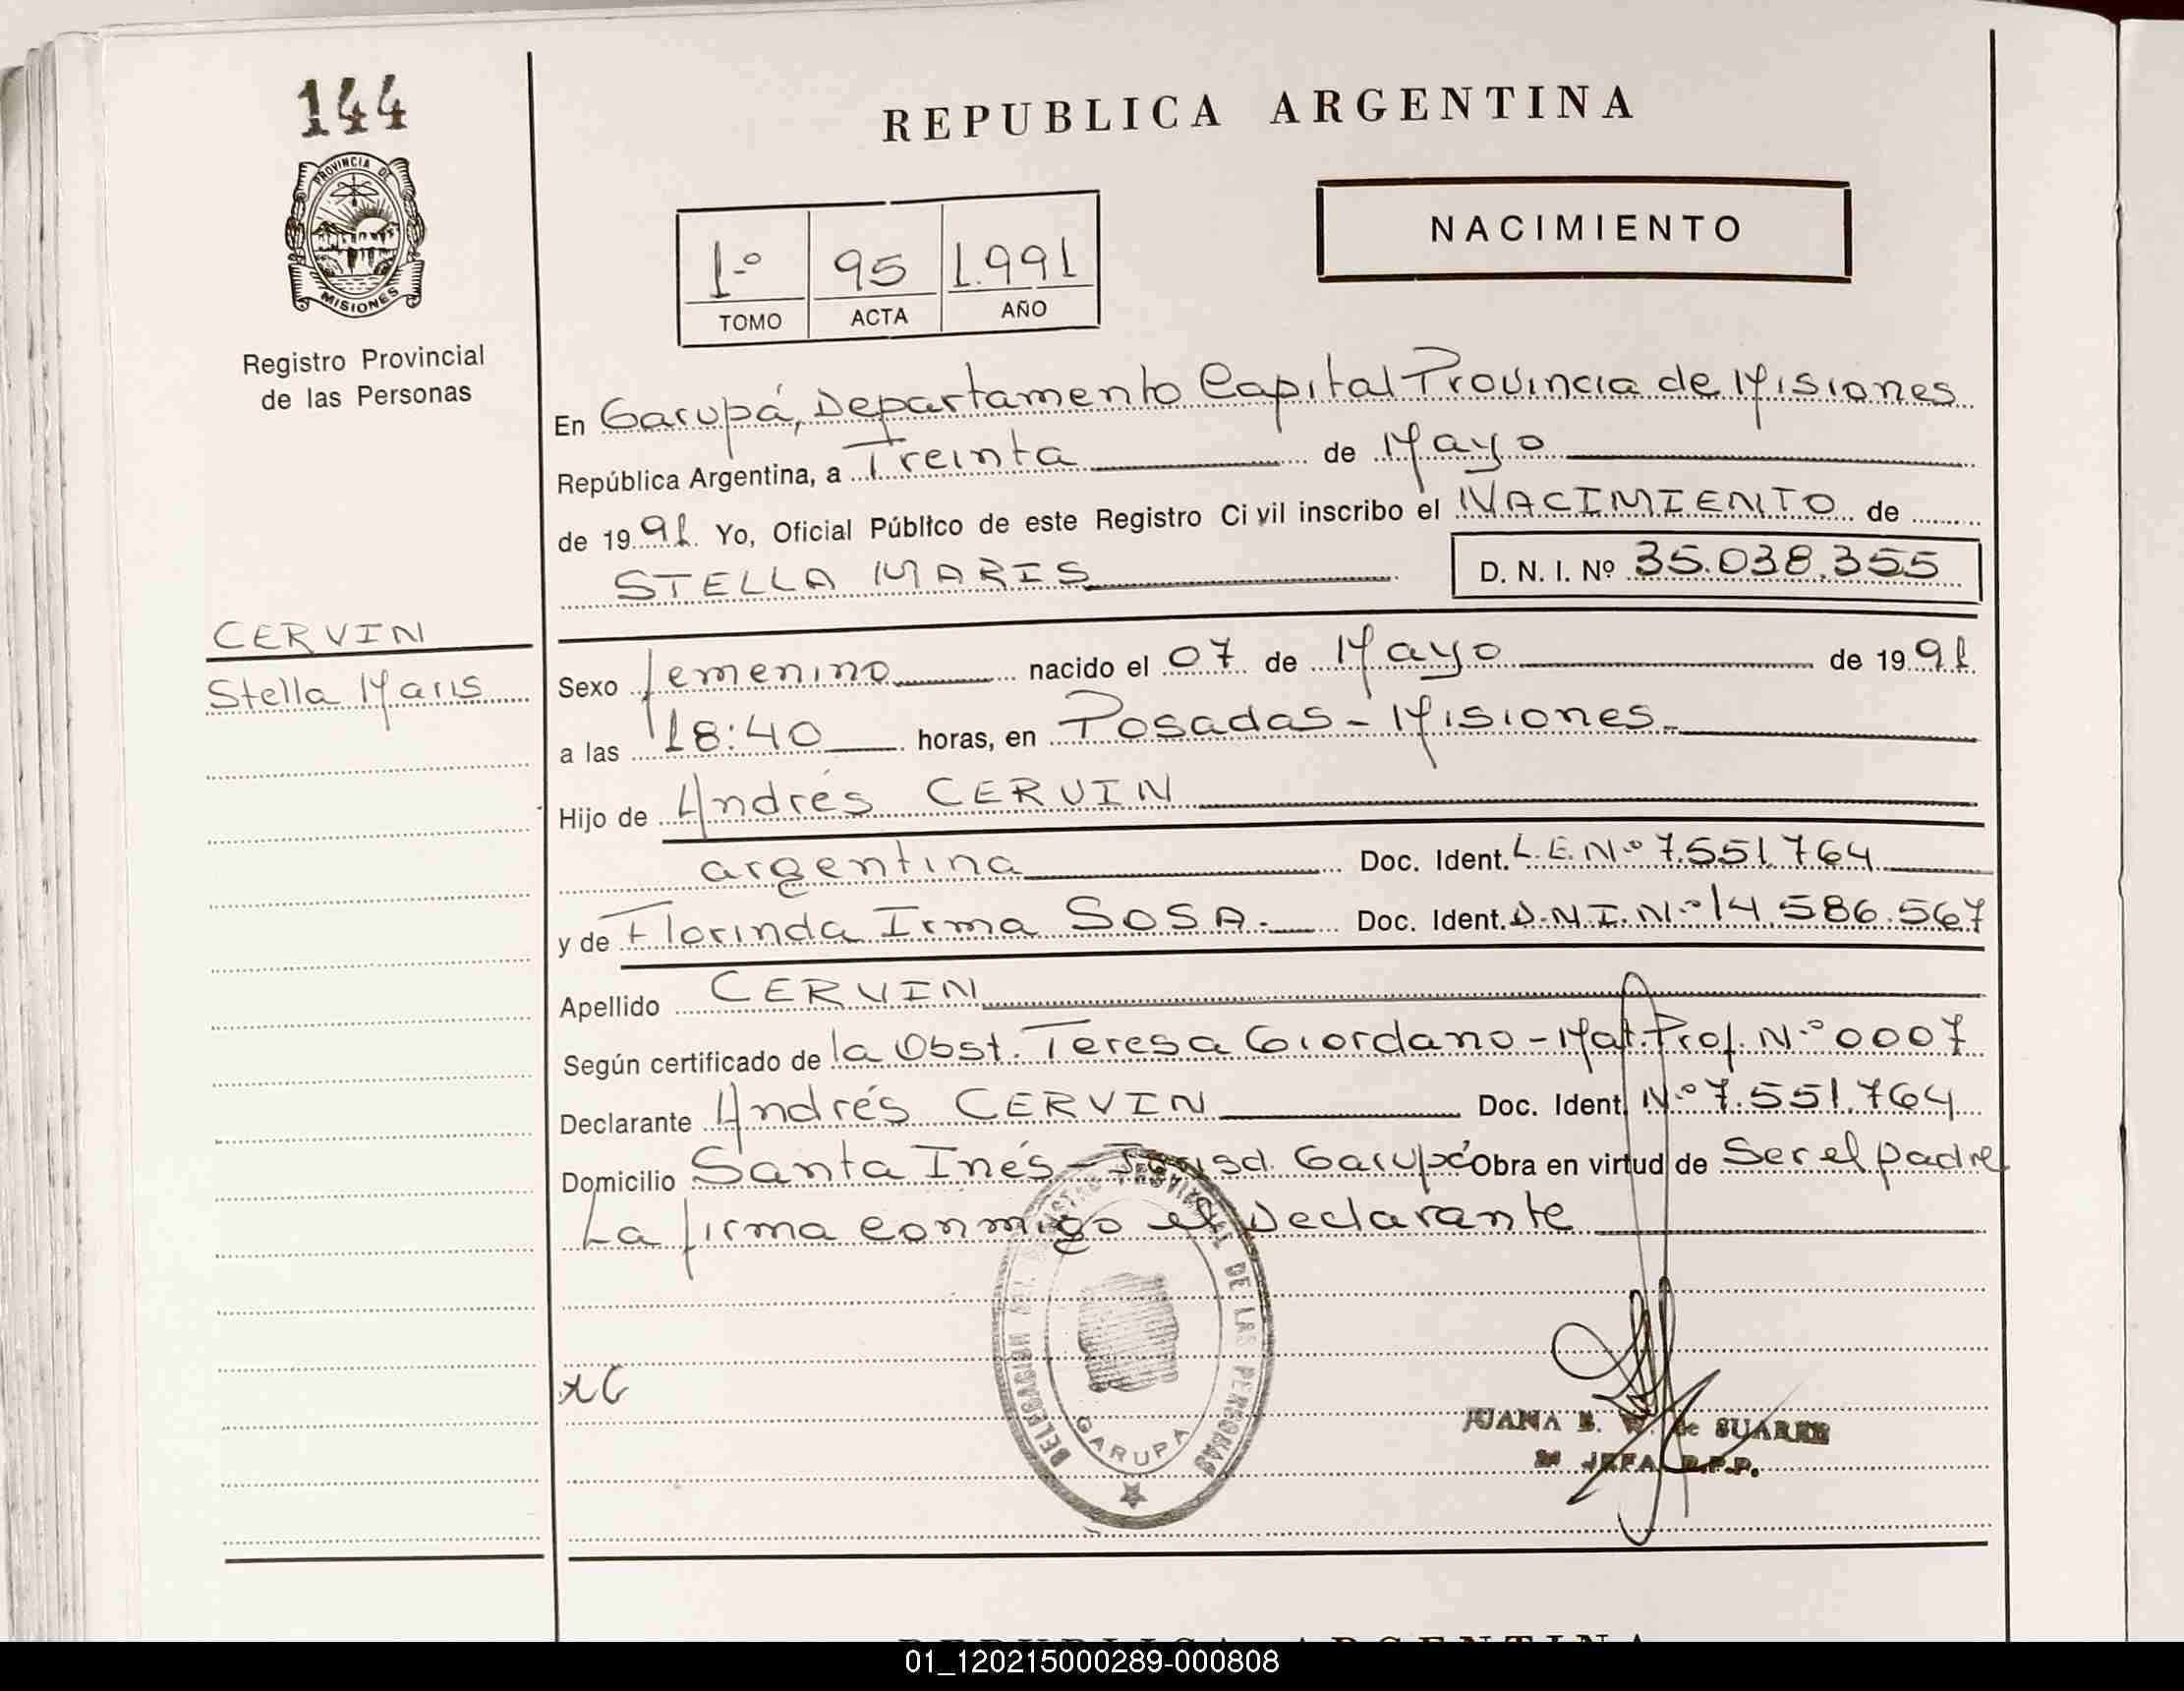 144
REPUBLICA ARGENTINA
PROVINCIA DE
MISIONES
Registro Provincial
de las Personas
NACIMIENTO
1.º 95 1.991
TOMO ACTA AÑO
En Garupá, Departamento Capital Provincia de Misiones
República Argentina, a Treinta de Mayo
de 1991 Yo, Oficial Público de este Registro Civil inscribo el NACIMIENTO de
STELLA MARIS D. N. I. Nº 35.038.355
CERVIN
Stella Maris
Sexo femenino nacido el 07 de Mayo de 1991
a las 18:40 horas, en Posadas - Misiones.-
Hijo de Andrés CERVIN
argentina Doc. Ident. L.E.N.º 7.551.764
y de Florinda Irma SOSA.- Doc. Ident. D.N.I.N.º 14.586.567
Apellido CERVIN
Según certificado de la Obst. Teresa Giordano - Mat. Prof. N.º 0007
Declarante Andrés CERVIN Doc. Ident. N.º 7.551.764
Domicilio Santa Inés - Jurisd. Garupá Obra en virtud de Ser el padre
La firma conmigo el Declarante
DELEGACION DEL REGISTRO PROVINCIAL DE LAS PERSONAS
GARUPA
JUANA B. de SUAREZ
JEFA R.P.P.
REPUBLICA ARGENTINA
01_120215000289-000808